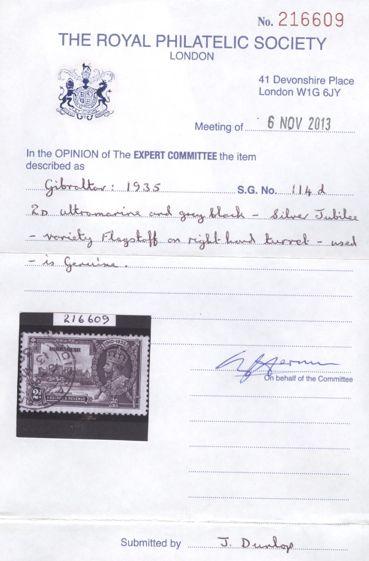 No. 216609
THE ROYAL PHILATELIC SOCIETY
LONDON
41 Devonshire Place
London W1G 6JY
Meeting of 6 NOV 2013
In the OPINION of The EXPERT COMMITTEE the item
described as
Gibraltar: 1935 S.G. No. 114d
2D ultramarine and grey black - Silver Jubilee
- variety Flagstaff on right hand turret - used
- is Genuine.
216609
On behalf of the Committee
Submitted by J. Dunlop